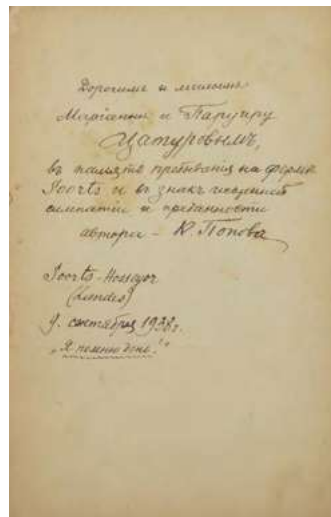 Дорогимъ и милымъ
Маріаннѣ и Паруйру
Цатуровымъ,
въ память пребыванія на фермѣ
Yoorts и въ знакъ искренней
симпатіи и преданности
автора – К. Попова
Yoorts-Hossegor
(Landes)
9. сентября 1938 г.
„Я помню